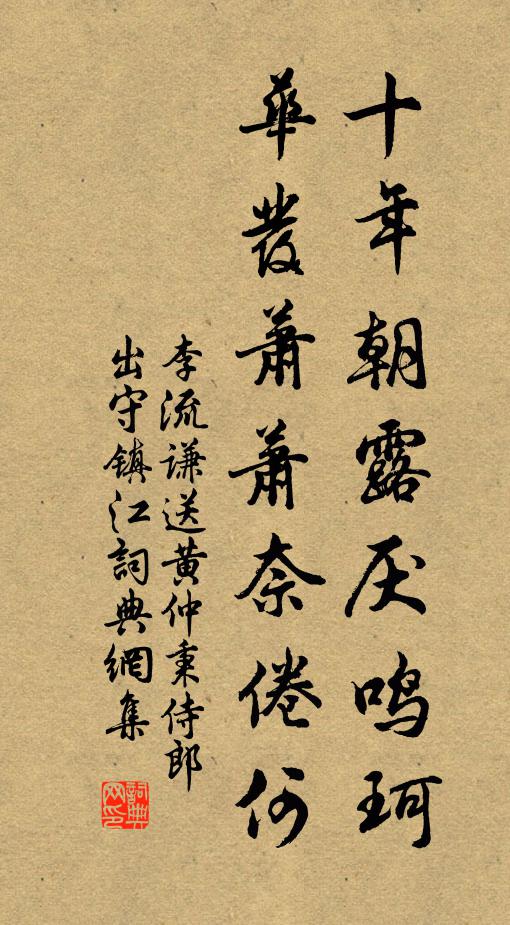 十年朝露厌鸣珂
華發蕭蕭奈倦何
李流谦送黄仲秉侍郎
出守镇江詞典網集
詞典网印